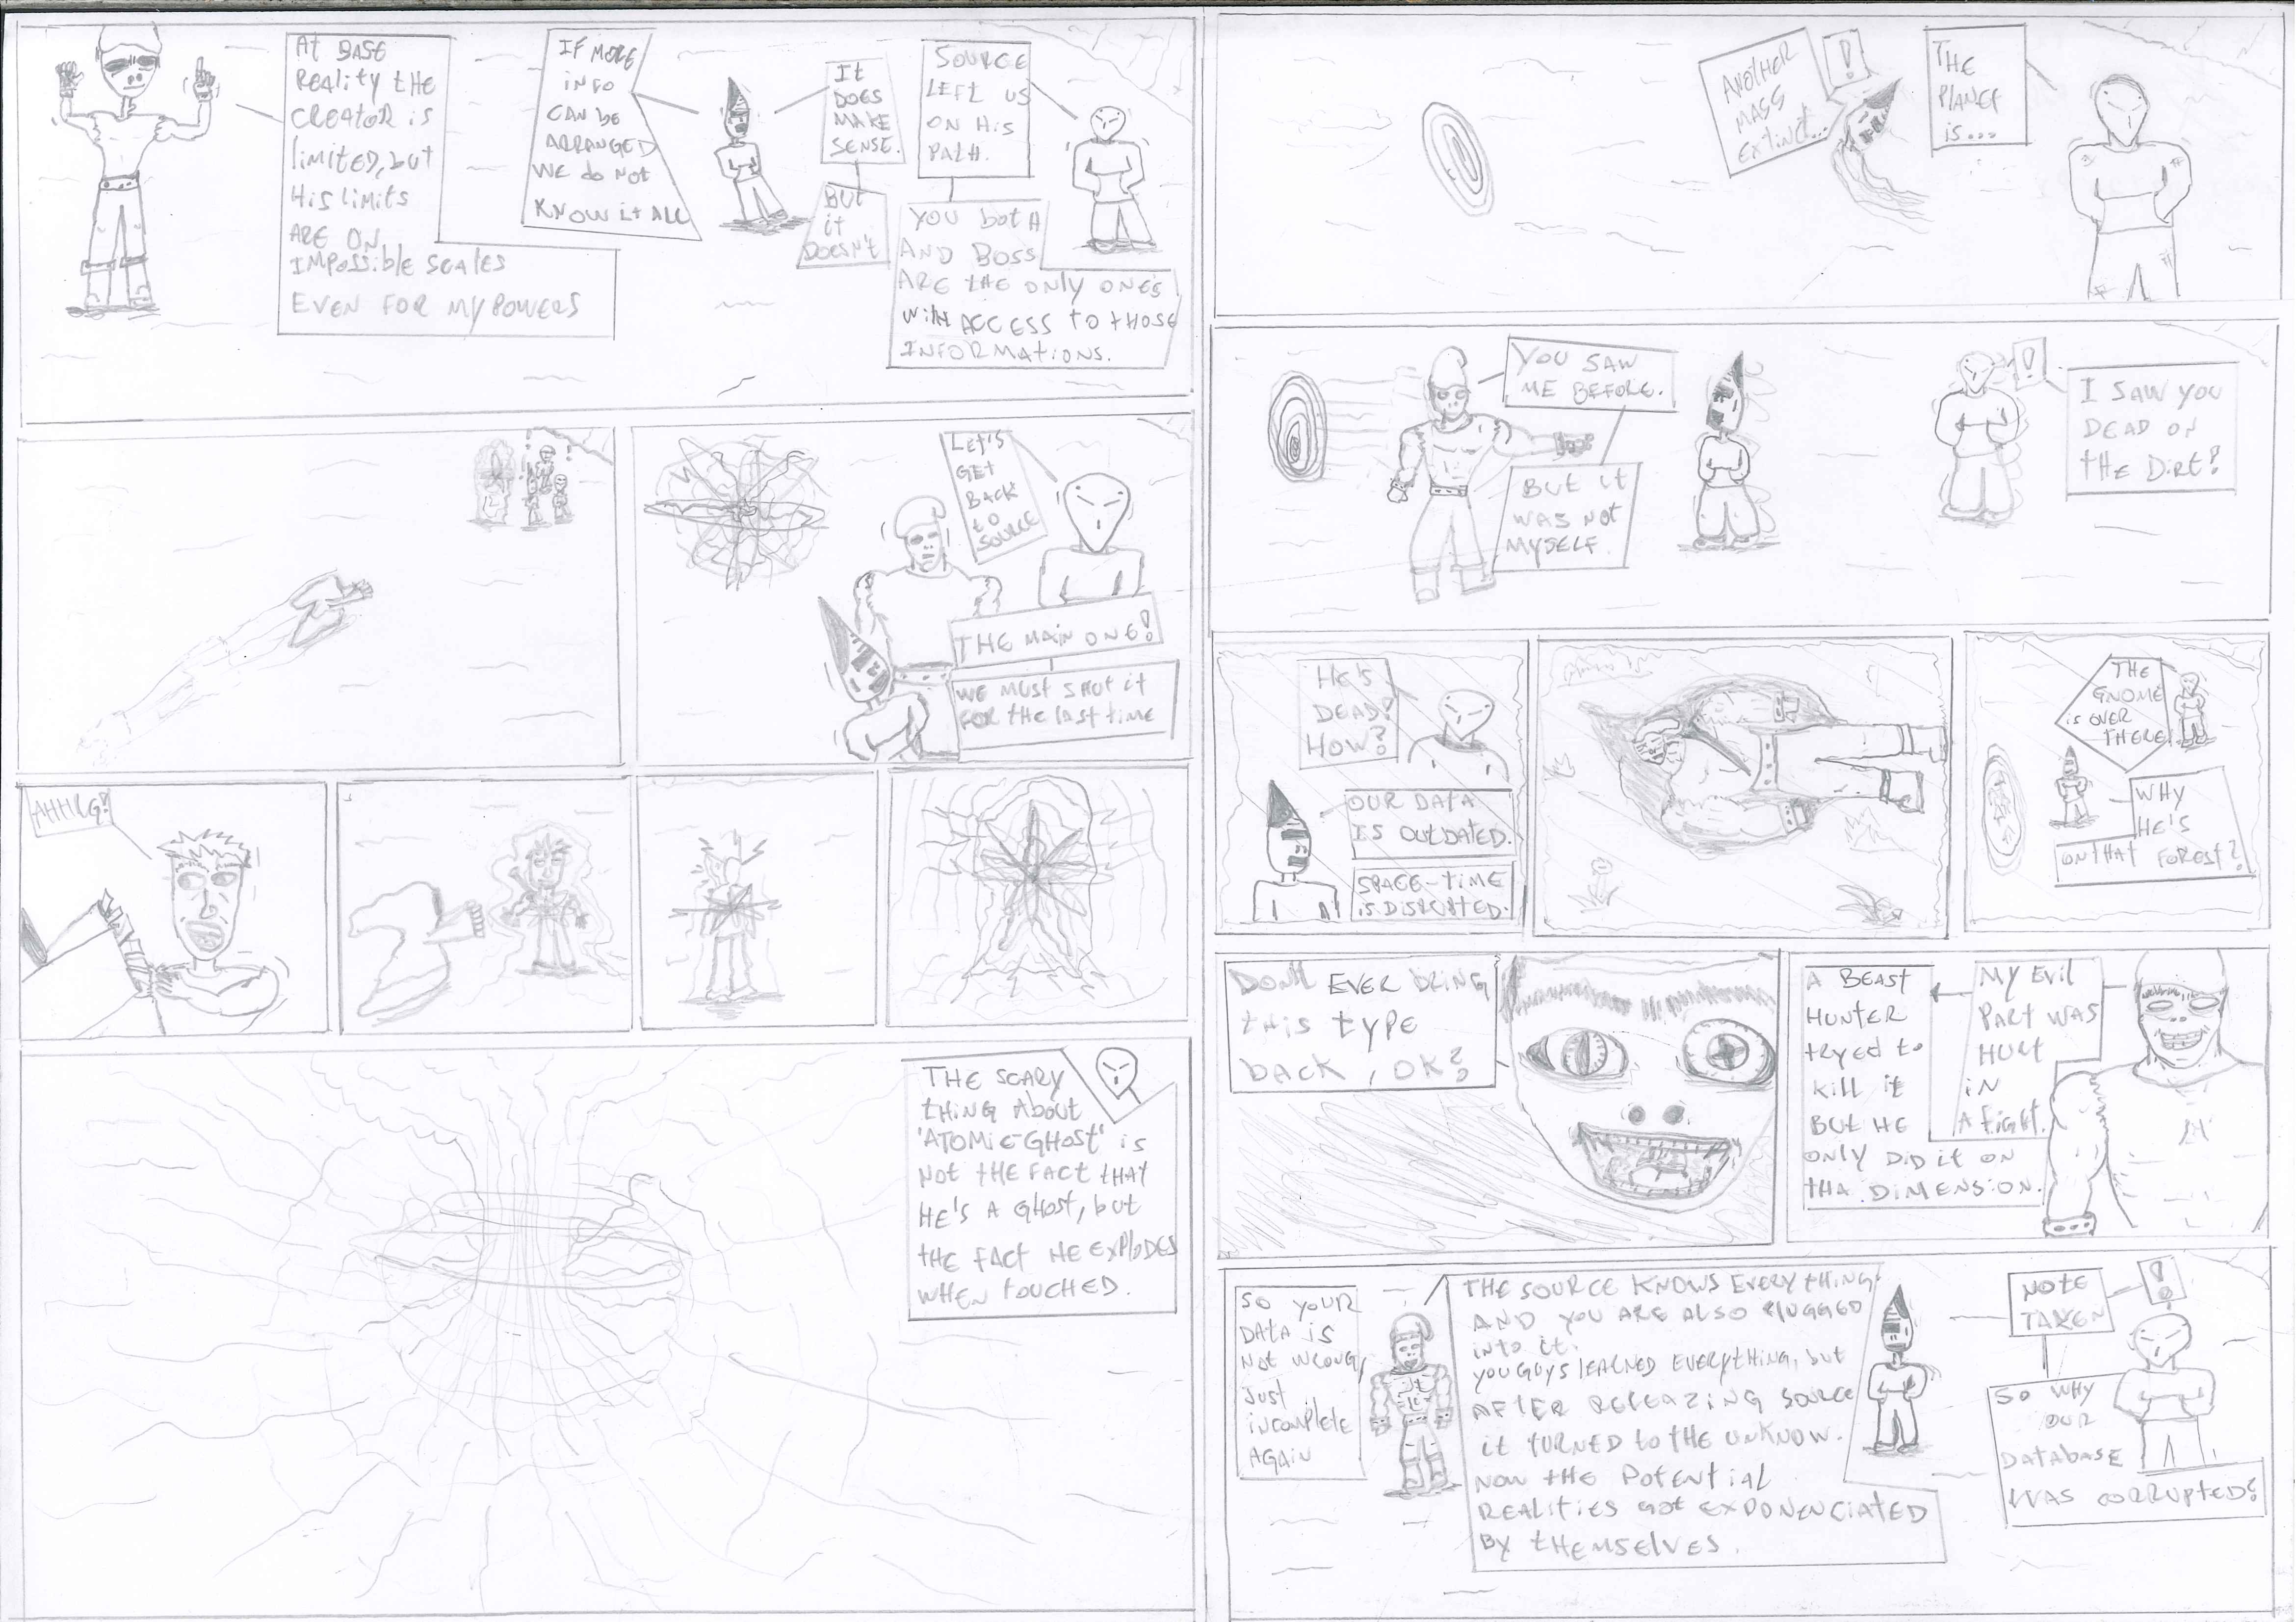 At BASE
REALITY tHE
CREATOR iS
LIMITED, but
His LIMITS
ARE ON
IMPOSSIBLE SCALES
EVEN FOR MY POWERS
IF MORE
INFO
CAN be
ARRANGED
WE do NOT
KNOW it ALL
It
DOES
MAKE
SENSE.
BUt
it
DOESN't
SOURCE
LEFT US
ON HIS
PATH.
YOU botH
AND BOSS
ARE tHE ONLY ONE'S
WitH ACCESS TO tHOSE
INFORMATIONS.
LEt'S
GEt
BACK
to
SOURCE
THE MAIN ONE!
WE MUST SHUT it
FOR THE last TIME
AHHRG!
THE SCARY
tHING About
'ATOMIC-GHOSt' iS
NOt tHE FACt tHAt
HE'S A GHOSt, but
tHE FACt HE EXPLODES
WHEN tOUCHED.
ANOtHER
MASS
EXtINCt...
!
THE
PLANEt
iS...
YOU SAW
ME BEFORE.
BUt it
WAS NOt
MYSELF.
!
I SAW YOU
DEAD ON
tHE DIRt!
HE'S
DEAD!
HOW?
OUR DATA
IS OUtDATED.
SPACE-tiME
iS DISRUPTED.
THE
GNOME
iS OVER
THERE!
WHY
HE'S
ON tHAt FOREST?
DON't EVER BRING
tHIS tYPE
back, OK?
MY EVIL
PARt WAS
HURt
iN
A FiGHt.
A BEASt
HUNTER
tRYED to
KILL it
BUt HE
ONLY DID it ON
tHA DIMENSION.
SO YOUR
DAtA iS
NOt WRONG,
JUSt
INCOMPLETE
AGAIN
THE SOURCE KNOWS EVERYtHING
AND YOU ARE ALSO PLUGGED
INtO it.
YOU GUYS LEARNED EVERYtHING, but
AFTER RELEAZING SOURCE
it tURNED tO tHE UNKNOW.
NOW tHE POtENtiAL
REALITIES GOt EXPONENCIATED
BY tHEMSELVES.
NOtE
TAKEN
!
SO WHY
OUR
DATABASE
WAS CORRUPTED?